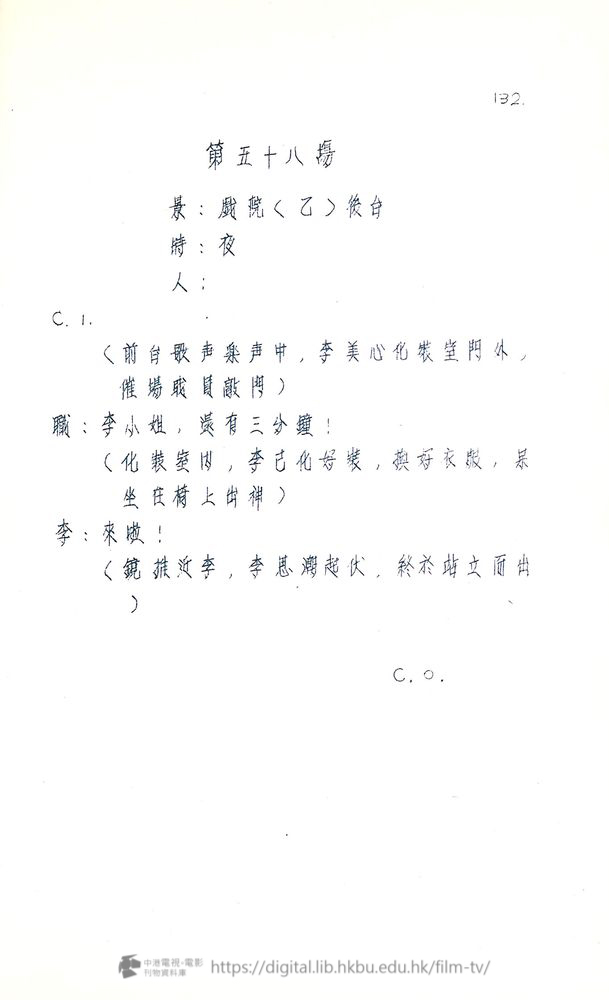 132.
第五十八場
景：戲院（乙）後台
時：夜
人：
C. I.
（前台歌声樂声中，李美心化裝室門外，
催場職員敲門）
職：李小姐，還有三分鐘！
（化裝室內，李已化好裝，換好衣服，呆
坐在椅上出神）
李：來啦！
（鏡推近李，李思潮起伏，終於站立而出
）
C. O.
中港電視·電影
刊物資料庫
https://digital.lib.hkbu.edu.hk/film-tv/